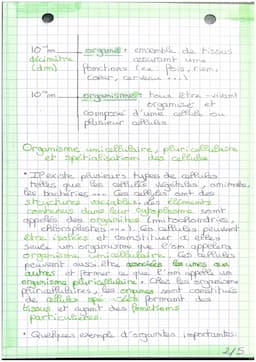 10⁻¹m organe : ensemble de tissus
décimètre assurant une
(dm) fonctions (ex : foie, rein,
cœur, cerveau ...)
10⁻⁰m organisme : tous être-vivant
organisés et
composé d'une cellule ou
plusieur cellules
Organisme unicellulaire, pluricellulaire
et spécialisation des cellule
• Il existe plusieurs types de cellules
telles que les cellules végétales, animales,
les bactéries ... Ces cellules ont des
structures variables. Les éléments
contenus dans leur cytoplasme sont
appelés des organites (mitochondries,
chloroplastes ...). Ces cellules peuvent
être isolées et constituer à elles
seule un organisme que l'on appelera
organisme unicellulaire. Les cellules
peuvent aussi être associées les unes aux
autres et former ce que l'on appelle un
organisme pluricellulaire. Chez les organisme
pluricellulaires, les organes sont constitués
de cellules formant des
tissus et ayant des fonctions
particulières.
• Quelques exemple d'organites importantes:
2/5